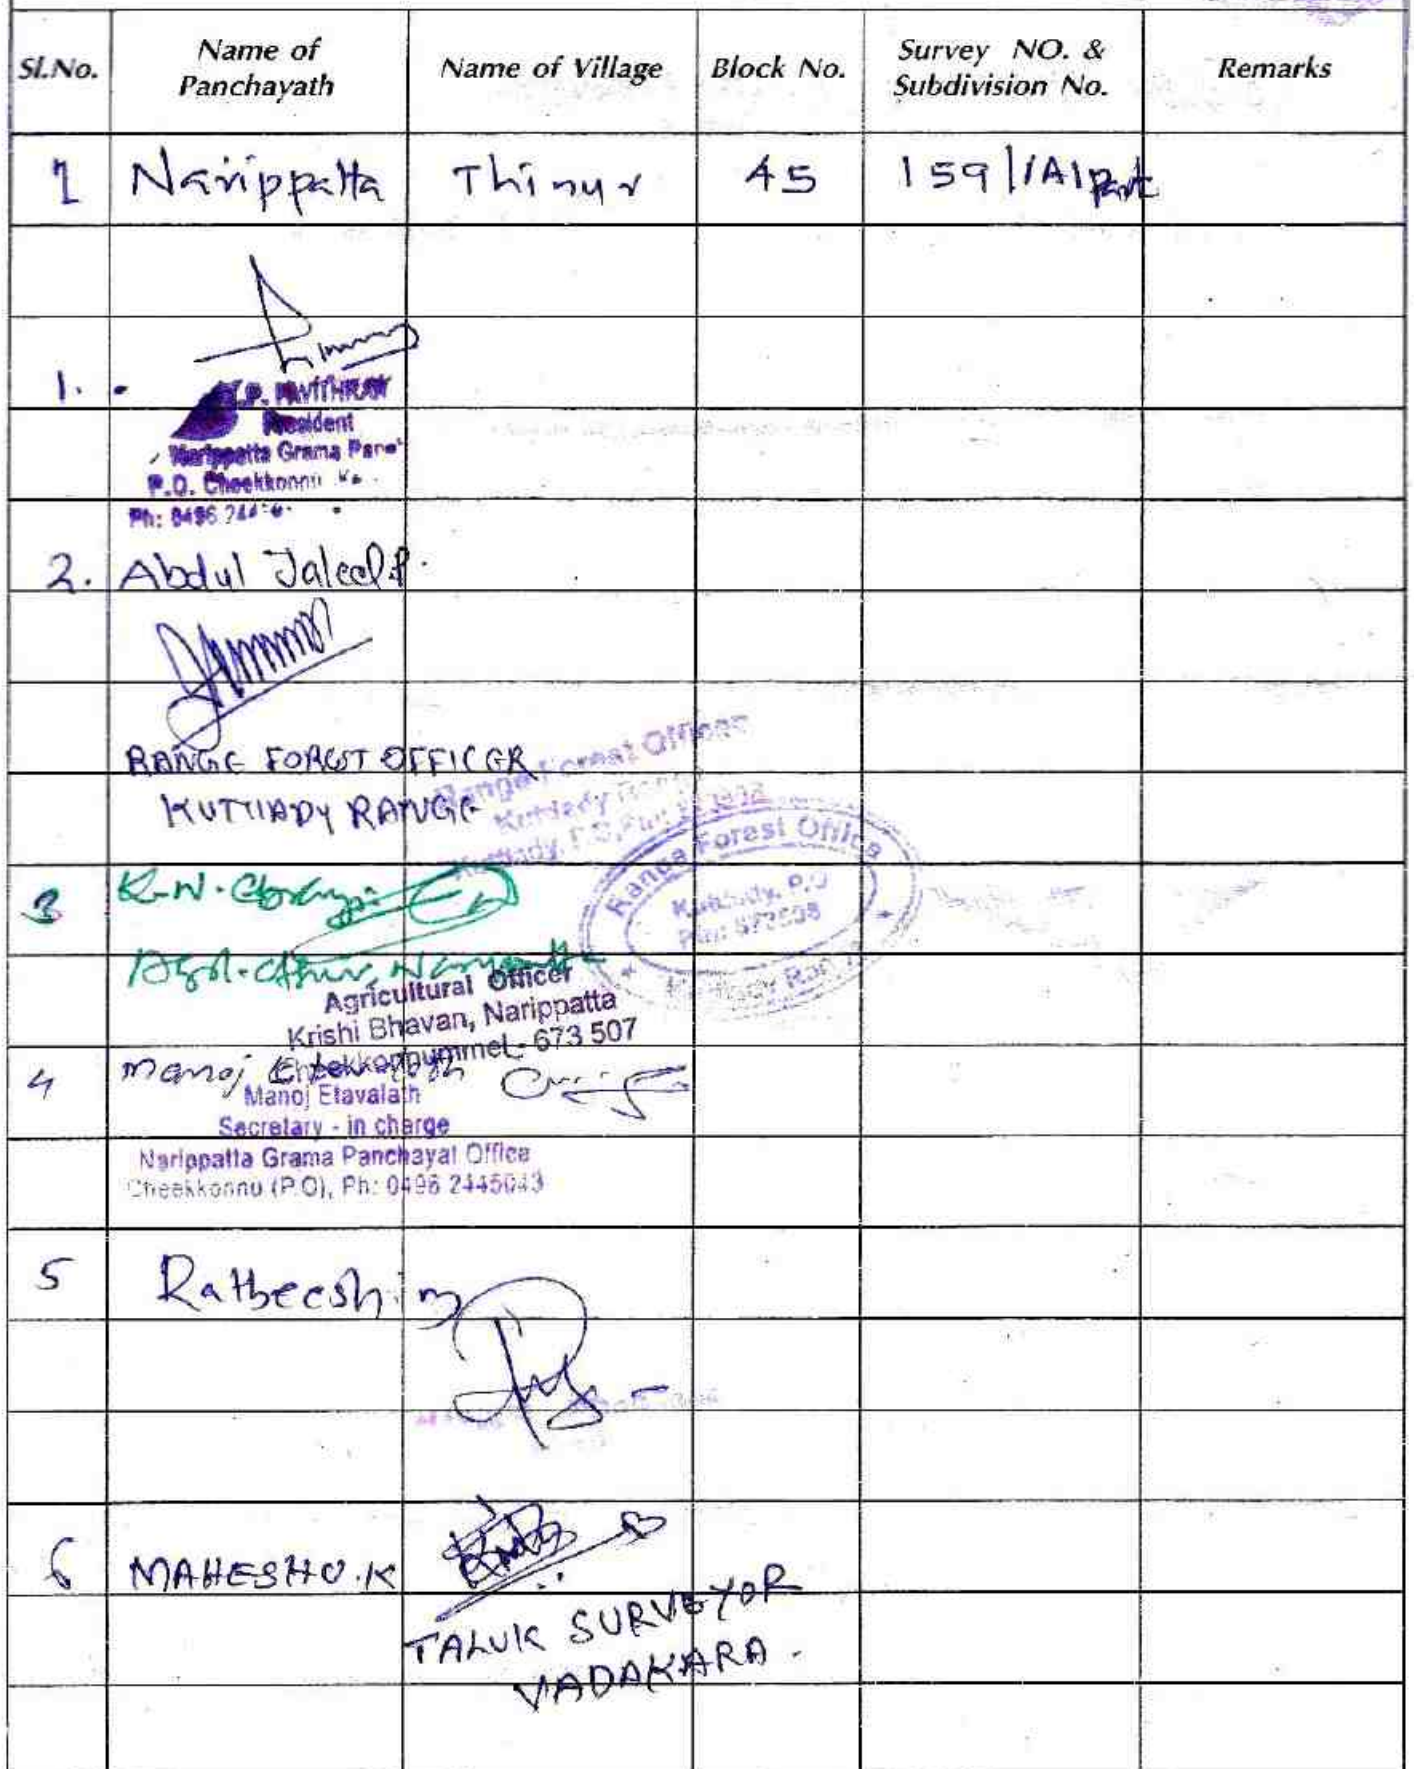 Sl.No.
Name of
Panchayath
Name of Village
Block No.
Survey NO. &
Subdivision No.
Remarks
1 Narippatta Thinur 45 159/1A1part
1.
P. PAVITHRAN
President
Narippatta Grama Panc
P.O. Cheekkonnu
Ph: 0496 244
2. Abdul Jaleel.P.
RANGE FOREST OFFICER
KUTTIADY RANGE
Range Forest Officer
Kuttiady
Kuttiady, P.O, Pin:
Range Forest Office
Kuttiady, P.O
Pin: 673508
Kuttiady Range
3 K.N.
Agrl. Officer, Narippatta
Agricultural Officer
Krishi Bhavan, Narippatta
Cheekkonnummel - 673 507
4 Manoj Etavalath
Manoj Etavalath
Secretary - in charge
Narippatta Grama Panchayat Office
Cheekkonnu (P.O), Ph: 0496 2445043
5 Ratheesh. m
6 MAHESH U.K
TALUK SURVEYOR
VADAKARA.